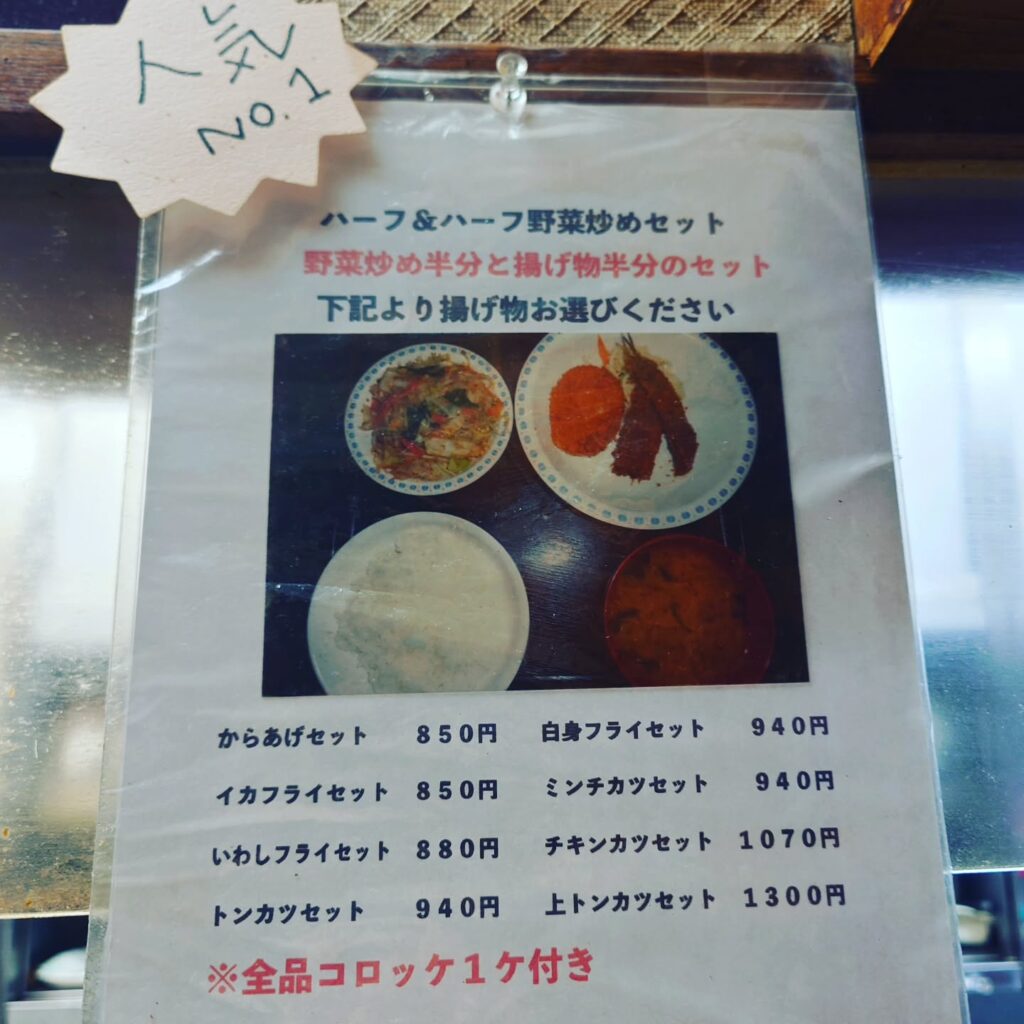 人気
No.1
ハーフ＆ハーフ野菜炒めセット
野菜炒め半分と揚げ物半分のセット
下記より揚げ物お選びください
からあげセット 850円 白身フライセット 940円
イカフライセット 850円 ミンチカツセット 940円
いわしフライセット 880円 チキンカツセット 1070円
トンカツセット 940円 上トンカツセット 1300円
※全品コロッケ１ケ付き